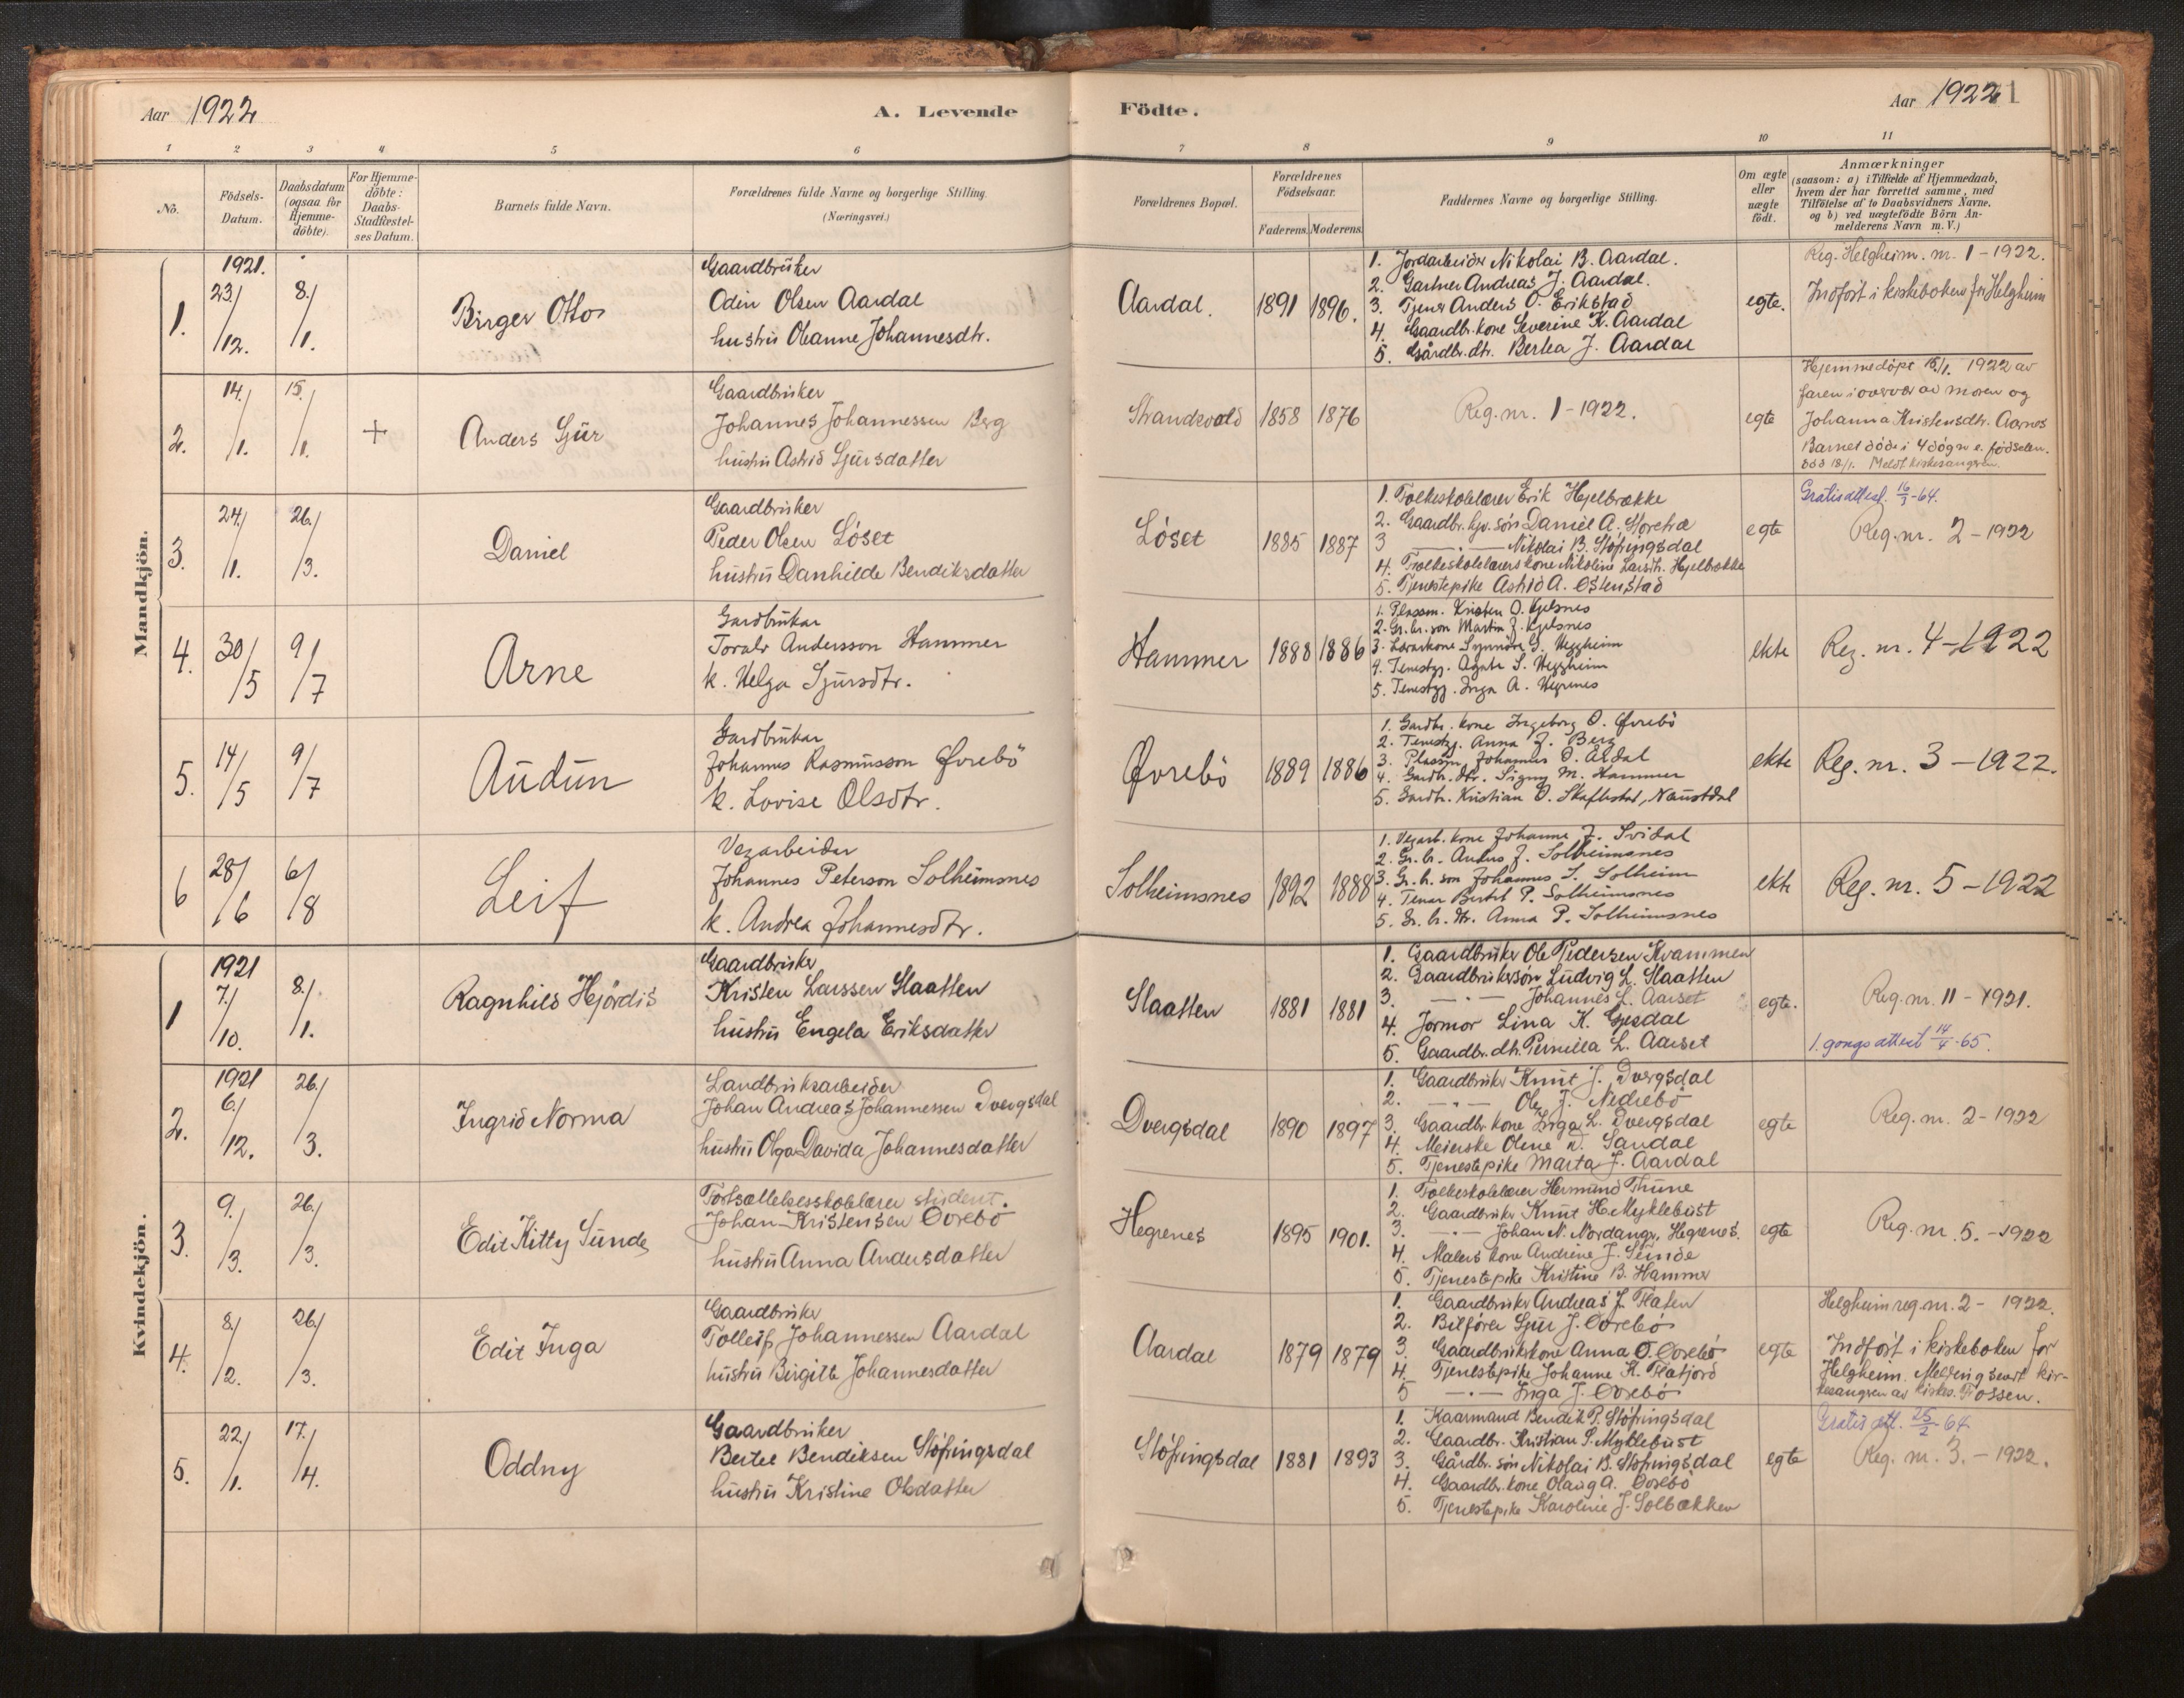 Aar 1922
A. Levende
Födte.
Aar 1922
1 2 3 4 5 6 7 8 9 10 11
No.
Födsels-
Datum.
Daabsdatum
(ogsaa for
Hjemme-
döbte).
For Hjemme-
döbte:
Daabs-
Stadfæstel-
ses Datum.
Barnets fulde Navn.
Forældrenes fulde Navne og borgerlige Stilling.
(Næringsvei.)
Forældrenes Bopæl.
Forældrenes
Födselsaar.
Faderens. Moderens.
Faddernes Navne og borgerlige Stilling.
Om ægte
eller
uægte
födt.
Anmærkninger
(saasom: a) i Tilfælde af Hjemmedaab,
hvem der har forrettet samme, med
Tilföielse af to Daabsvidners Navne,
og b) ved uægtefödte Börn An-
melderens Navn m. V.)
Mandkjön.
1.
1921.
23./12.
8./1.
Birger Otto
Gaardbruker
Odin Olsen Aardal
hustru Oleanne Johannesdtr.
Aardal.
1891 1896.
1. Jordarbeider Nikolai B. Aardal.
2. Gartner Andreas J. Aardal.
3. Tjener Anders O. Erikstad
4. Gaardbr. kone Severine K. Aardal
5. Gårdbr. dtr. Bertea J. Aardal
egte.
Reg. Helgheim. nr. 1 - 1922.
Indført i kirkeboken for Helgheim
2.
14./1.
15./1.
+
Anders Sjur
Gaardbruker
Johannes Johannessen Berg
hustru Astrid Sjursdatter
Strandvold
1858 1876
Reg. nr. 1 - 1922.
egte
Hjemmedøpt 15/1. 1922 av
faren i overvær av moren og
Johanna Kristensdtr. Aarnes
Barnet døde i 4 døgn e. fødselen.
død 18/1. Meldt kirkesangeren.
3.
24./1.
26./3.
Daniel
Gaardbruker
Peder Olsen Løset
hustru Danhilde Bendiksdatter
Løset
1885 1887
1. Folkeskolelærer Erik Hjelbrække
2. Gaardbr. søn Daniel A. Støretræ
3 —"— Nikolai B. Støfringsdal
4. Folkeskolelærers kone Nikoline Larsdtr. Hjelbrække
5. Tjenestepike Astrid A. Østenstad
egte
Gratis attest. 16/3 - 64.
Reg. nr. 2 - 1922
4.
30/5
9/7
Arne
Gardbrukar
Toralv Andersson Hammer
k. Helga Sjursdtr.
Hammer
1888 1886
1. Plassm. Kristen O. Kjelsnes
2. Gr. br. son Martin J. Kjelsnes
3. Lærarkone Synnøve G. Heggheim
4. Tenestgj. Agate S. Heggheim
5. Tenestgj. Inga A. Hegrenes
ekte
Reg. nr. 4 - 1922
5.
14/5
9/7
Audun
Gardbrukar
Johannes Rasmusson Øvrebö
k. Lovise Olsdtr.
Øvrebö
1889 1886
1. Gardbr. kone Ingeborg O. Øvrebö
2. Tenestgj. Anna J. Berg
3. Plassm. Johannes O. Årdal
4. Gardb. dtr. Signy M. Hammer
5. Gardbr. Kristian O. Skaflestad, Naustdal
ekte
Reg. nr. 3 - 1922.
6
28/6
6/8
Leif
Vegarbeider
Johannes Peterson Solheimsnes
k. Andrea Johannesdtr.
Solheimsnes
1892 1888
1. Vegarb. kone Johanne J. Svidal
2. Gr. br. Anders J. Solheimsnes
3. Gr. b. son Johannes S. Solheim
4. Tenar Bertel P. Solheimsnes
5. Gr. b. dtr. Anna P. Solheimsnes
ekte
Reg. nr. 5 - 1922
Kvindekjön.
1
1921
7./10.
8./1.
Ragnhild Hjørdis
Gaardbruker
Kristen Larssen Slaatten
hustru Engela Eriksdatter
Slaatten
1881 1881
1. Gaardbruker Ole Pedersen Kvammen
2. Gaardbrukersøn Ludvig L. Slaatten
3. —"— Johannes L. Aarset
4. Jormor Lina K. Gjesdal
5. Gaardbr. dtr. Pernilla L. Aarset
egte.
Reg. nr. 11 - 1921.
1. gongs attest 14/4 - 65.
2.
1921
6./12.
26./3.
Ingrid Norma
Landbruksarbeider
Johan Andreas Johannessen Dvergsdal
hustru Olga Davida Johannesdatter
Dvergsdal
1890 1897
1. Gaardbruker Knut J. Dvergsdal
2. —"— Ole J. Nedrebö
3. Gaardbr. kone Inga L. Dvergsdal
4. Meierske Oline N. Sandal
5. Tjenestepike Marta J. Aardal
egte
Reg. nr. 2 - 1922
3.
9./3.
26./3.
Edit Kitty Sunde
Fortsættelsesskolelærer student.
Johan Kristensen Övrebö
hustru Anna Andersdatter
Hegrenes
1895 1901.
1. Folkeskolelærer Hermund Thune
2. Gaardbruker Knut H. Myklebust
3. —"— Johan N. Nordanger, Hegrenes.
4. Malers kone Andrine J. Sunde
5. Tjenestepike Kristine B. Hammer
egte
Reg. nr. 5. - 1922
4.
8./2.
26./3.
Edit Inga
Gaardbruker
Tolleif Johannessen Aardal
hustru Birgitte Johannesdatter
Aardal
1879 1879
1. Gaardbruker Andreas J. Flaten
2. Bilfører Sjur J. Övrebö
3. Gaardbrukerkone Anna O. Övrebö
4. Tjenestepike Johanne K. Flatjord
5 —"— Inga J. Övrebö
egte
Helgheim reg. nr. 2 - 1922.
Indført i kirkeboken for
Helgheim. Melding sendt kir-
kesangeren av kirkes. Fossen.
5.
22./1.
17./4.
Oddny
Gaardbruker
Bertel Bendiksen Støfringsdal
hustru Kristine Olsdatter
Støfringsdal
1881 1893
1. Kaarmand Bendik P. Støfringsdal
2. Gaardbr. Kristian S. Myklebust
3. Gårdbr. søn Nikolai B. Støfringsdal
4. Gaardbr. kone Olaug A. Övrebö
5. Tjenestepike Karoline J. Solbækken
egte
Gratis att. 25/2 - 64.
Reg. nr. 3. - 1922.